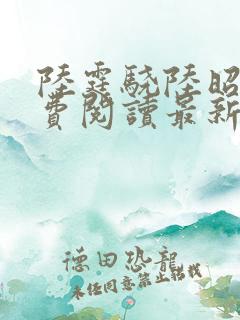 陸霆驍陸昭
費閱讀最新
德田恐龍
未经同意禁止转载